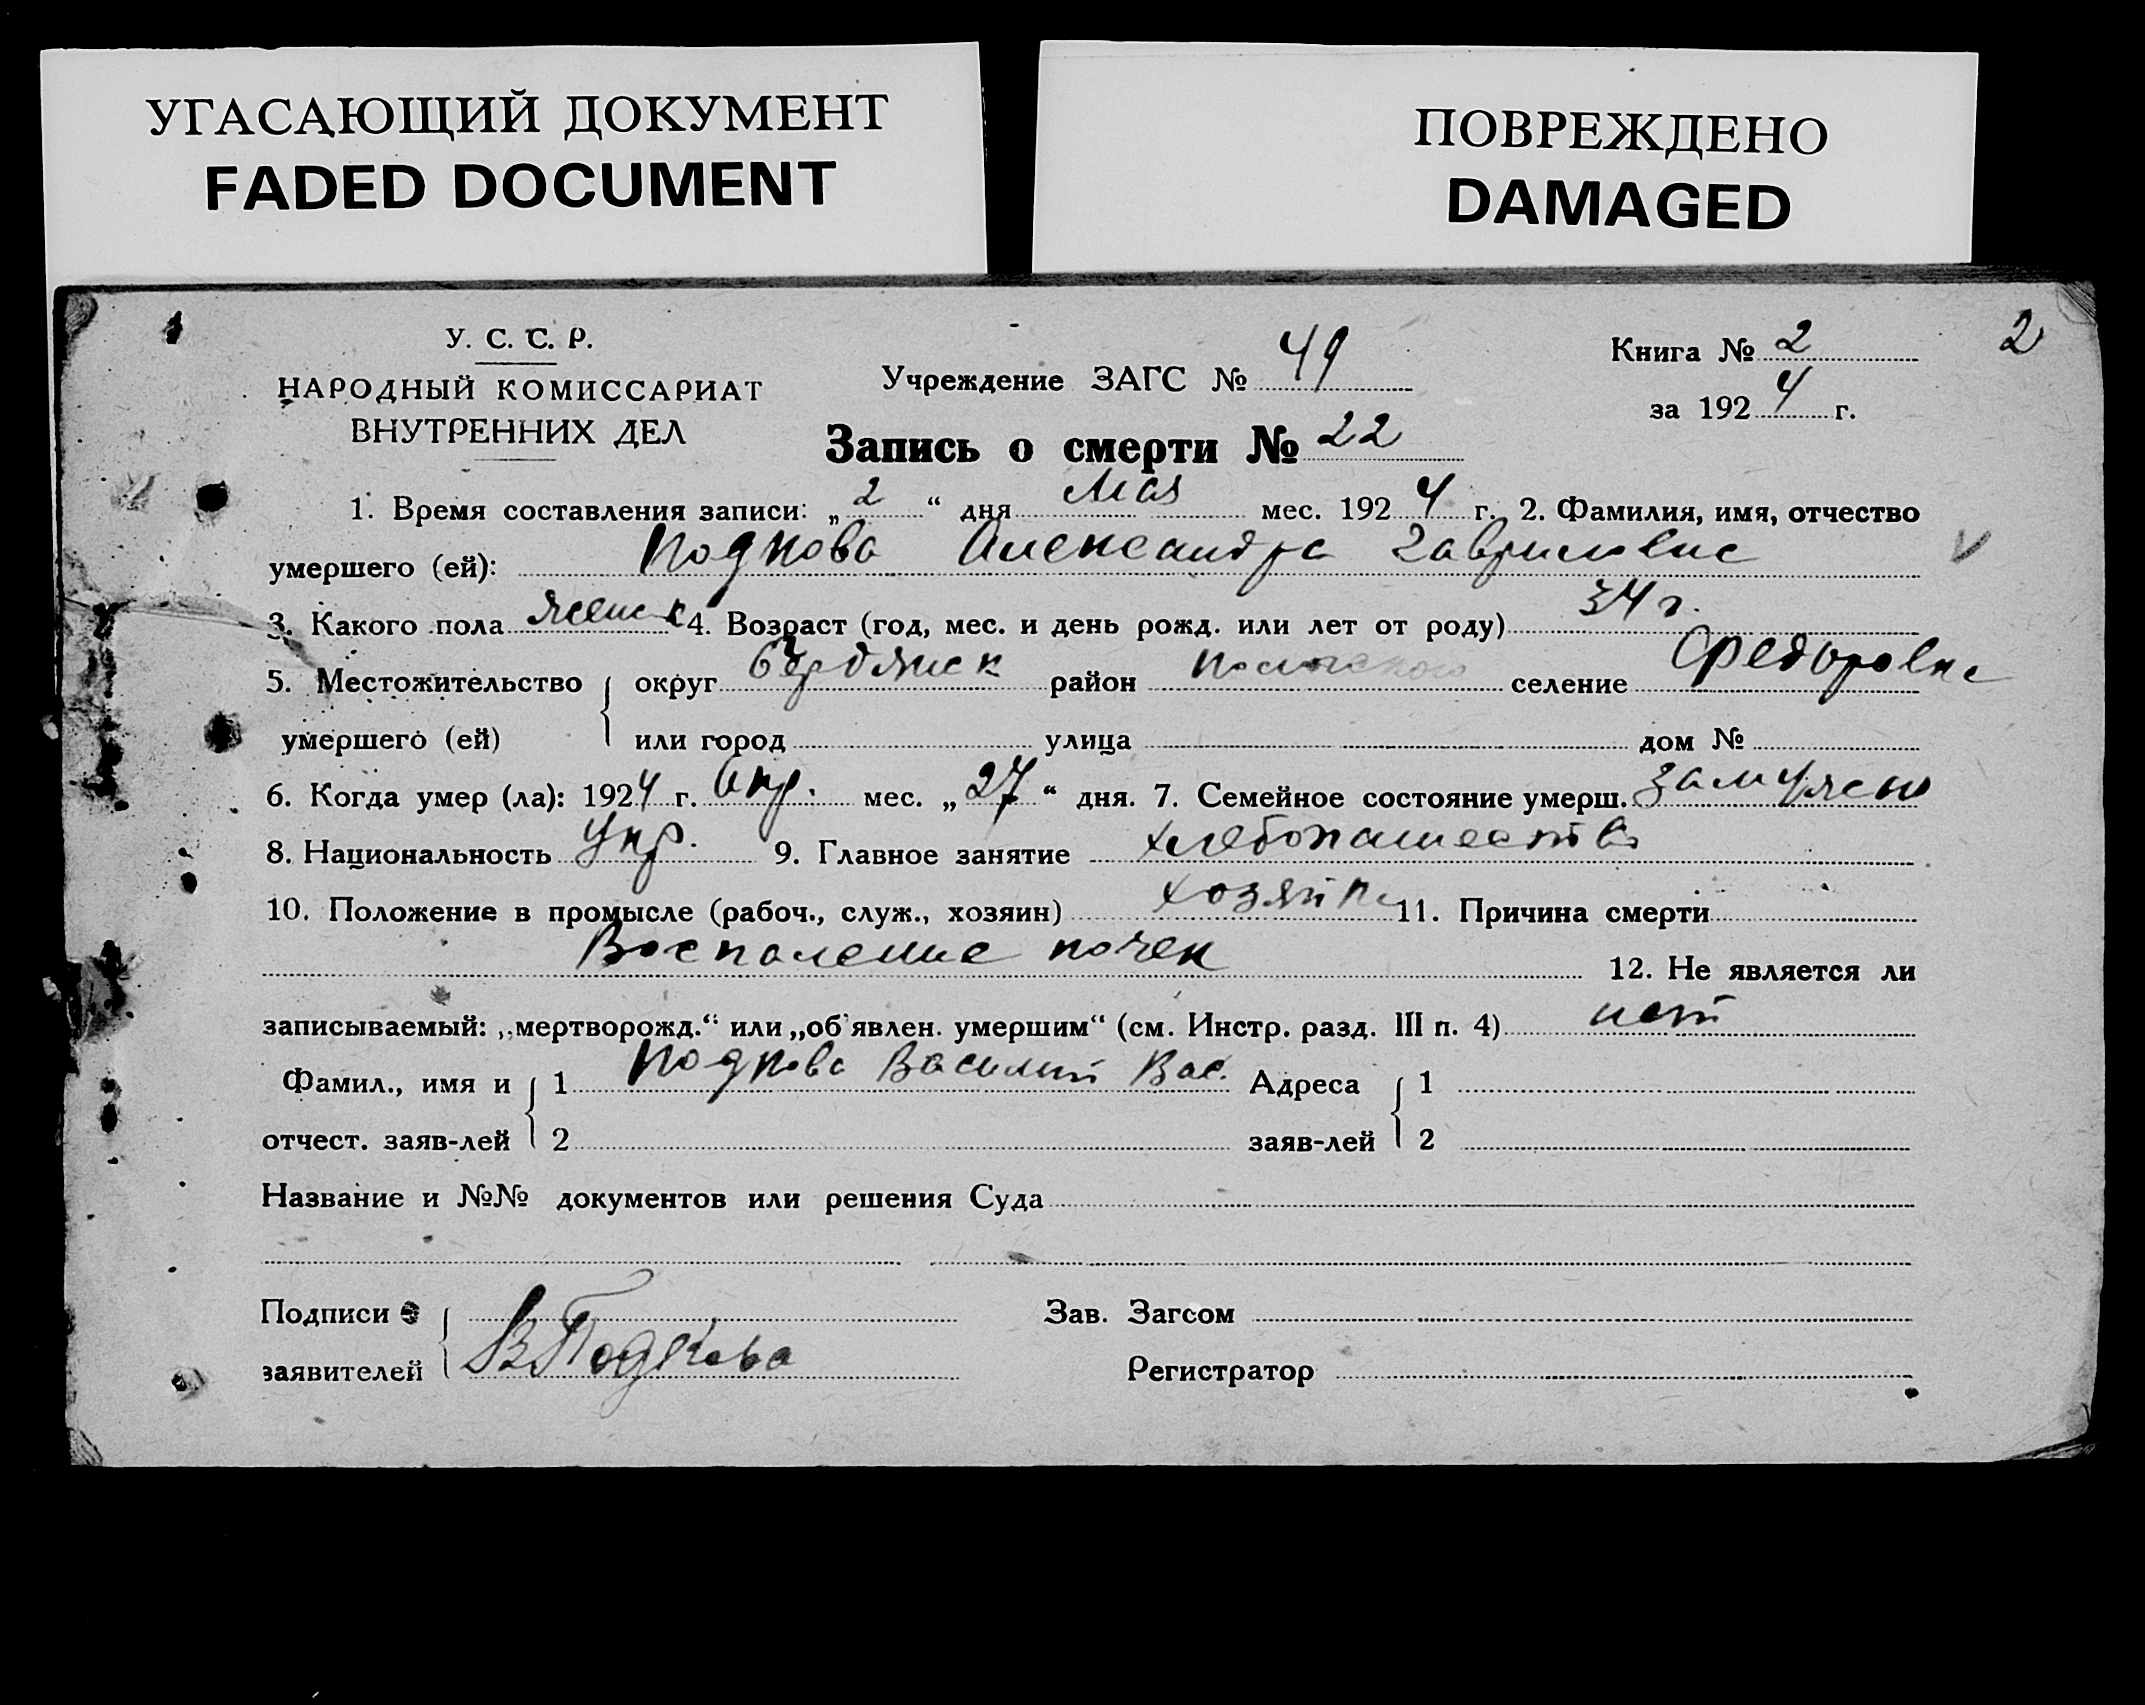 УГАСАЮЩИЙ ДОКУМЕНТ
FADED DOCUMENT
ПОВРЕЖДЕНО
DAMAGED
2
У. С. С. Р.
НАРОДНЫЙ КОМИССАРИАТ
ВНУТРЕННИХ ДЕЛ
Учреждение ЗАГС № 49
Книга № 2
за 1924 г.
Запись о смерти № 22
1. Время составления записи: „2“ дня Мая мес. 1924 г. 2. Фамилия, имя, отчество
умершего (ей): Подкова Александра Гавриловне
3. Какого пола женск 4. Возраст (год, мес. и день рожд. или лет от роду) 34 г.
5. Местожительство { округ Бердянск район селение Федоровке
умершего (ей) или город улица дом №
6. Когда умер (ла): 1924 г. Апр. мес. „27“ дня. 7. Семейное состояние умерш. замужем
8. Национальность Укр. 9. Главное занятие хлебопашество
10. Положение в промысле (рабоч., служ., хозяин) 11. Причина смерти
Воспаление почек 12. Не является ли
записываемый: „мертворожд.“ или „об'явлен. умершим“ (см. Инстр. разд. III п. 4) нет
Фамил., имя и { 1 Подкова Василий Вас. Адреса { 1
отчест. заяв-лей 2 заяв-лей 2
Название и №№ документов или решения Суда
Подписи { Зав. Загсом
заявителей ВПодкова Регистратор